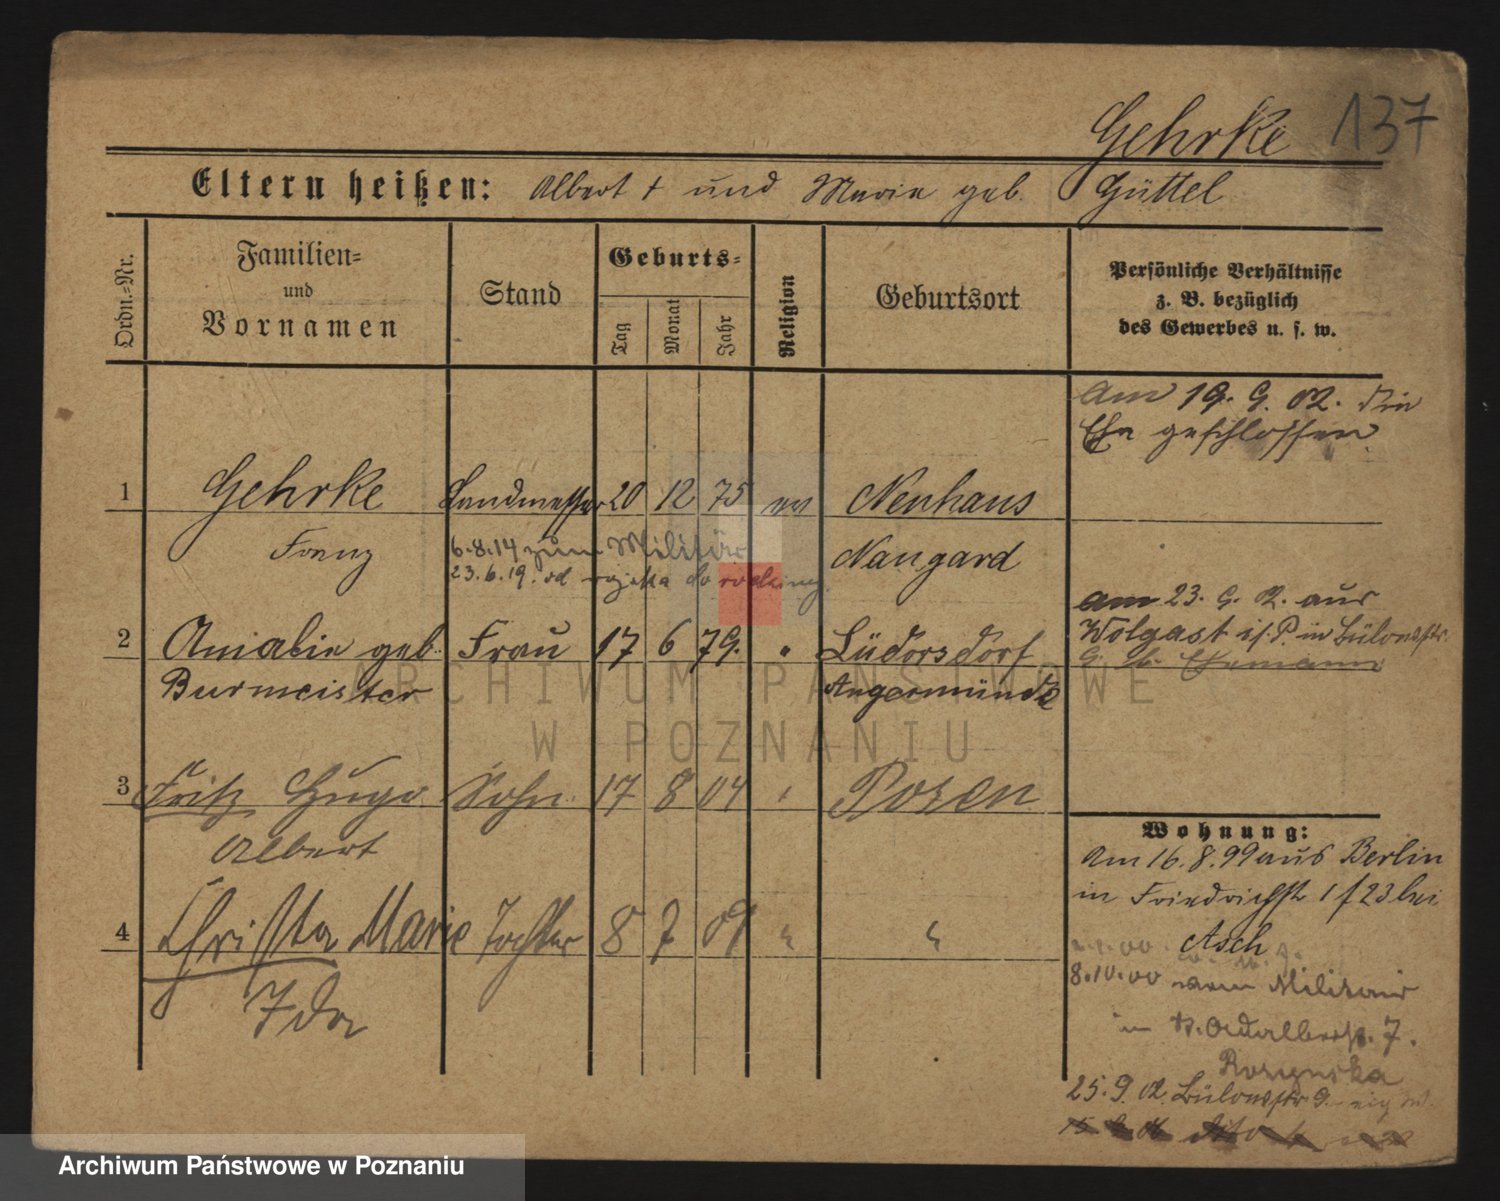 Gehrke 137
Eltern heißen: Albert † und Maria geb. Güttel
Ordn.-Nr.
Familien=
und
Vornamen
Stand
Geburts=
Tag
Monat
Jahr
Religion
Geburtsort
Persönliche Verhältnisse
z. B. bezüglich
des Gewerbes u. s. w.
Am 19. 9. 02. die
Ehe geschlossen.
1 Gehrke Landmesser 20 12 75 ev Neuhaus
Franz 6.8.14 zum Militär Naugard
23.6.19. od wojska do rodziny.
am 23. 9. 02. aus
Wolgast i/P. in Bülowstr.
9. b. Ehemann
2 Amalie geb. Frau 17 6 79. " Lüdersdorf
Burmeister Angermünde
3 Fritz Hugo Sohn 17 8 04 " Posen
Albert
4 Christa Marie Tochter 8 7 09 " "
Ida
Wohnung:
Am 16.8.99 aus Berlin
in Friedrichstr 1 f 23 bei
Asch
8.10.00 vom Militair
in St. Adalbertstr. 7.
25.9.02. Bülowstr 9.
ARCHIWUM PAŃSTWOWE
W POZNANIU
Archiwum Państwowe w Poznaniu